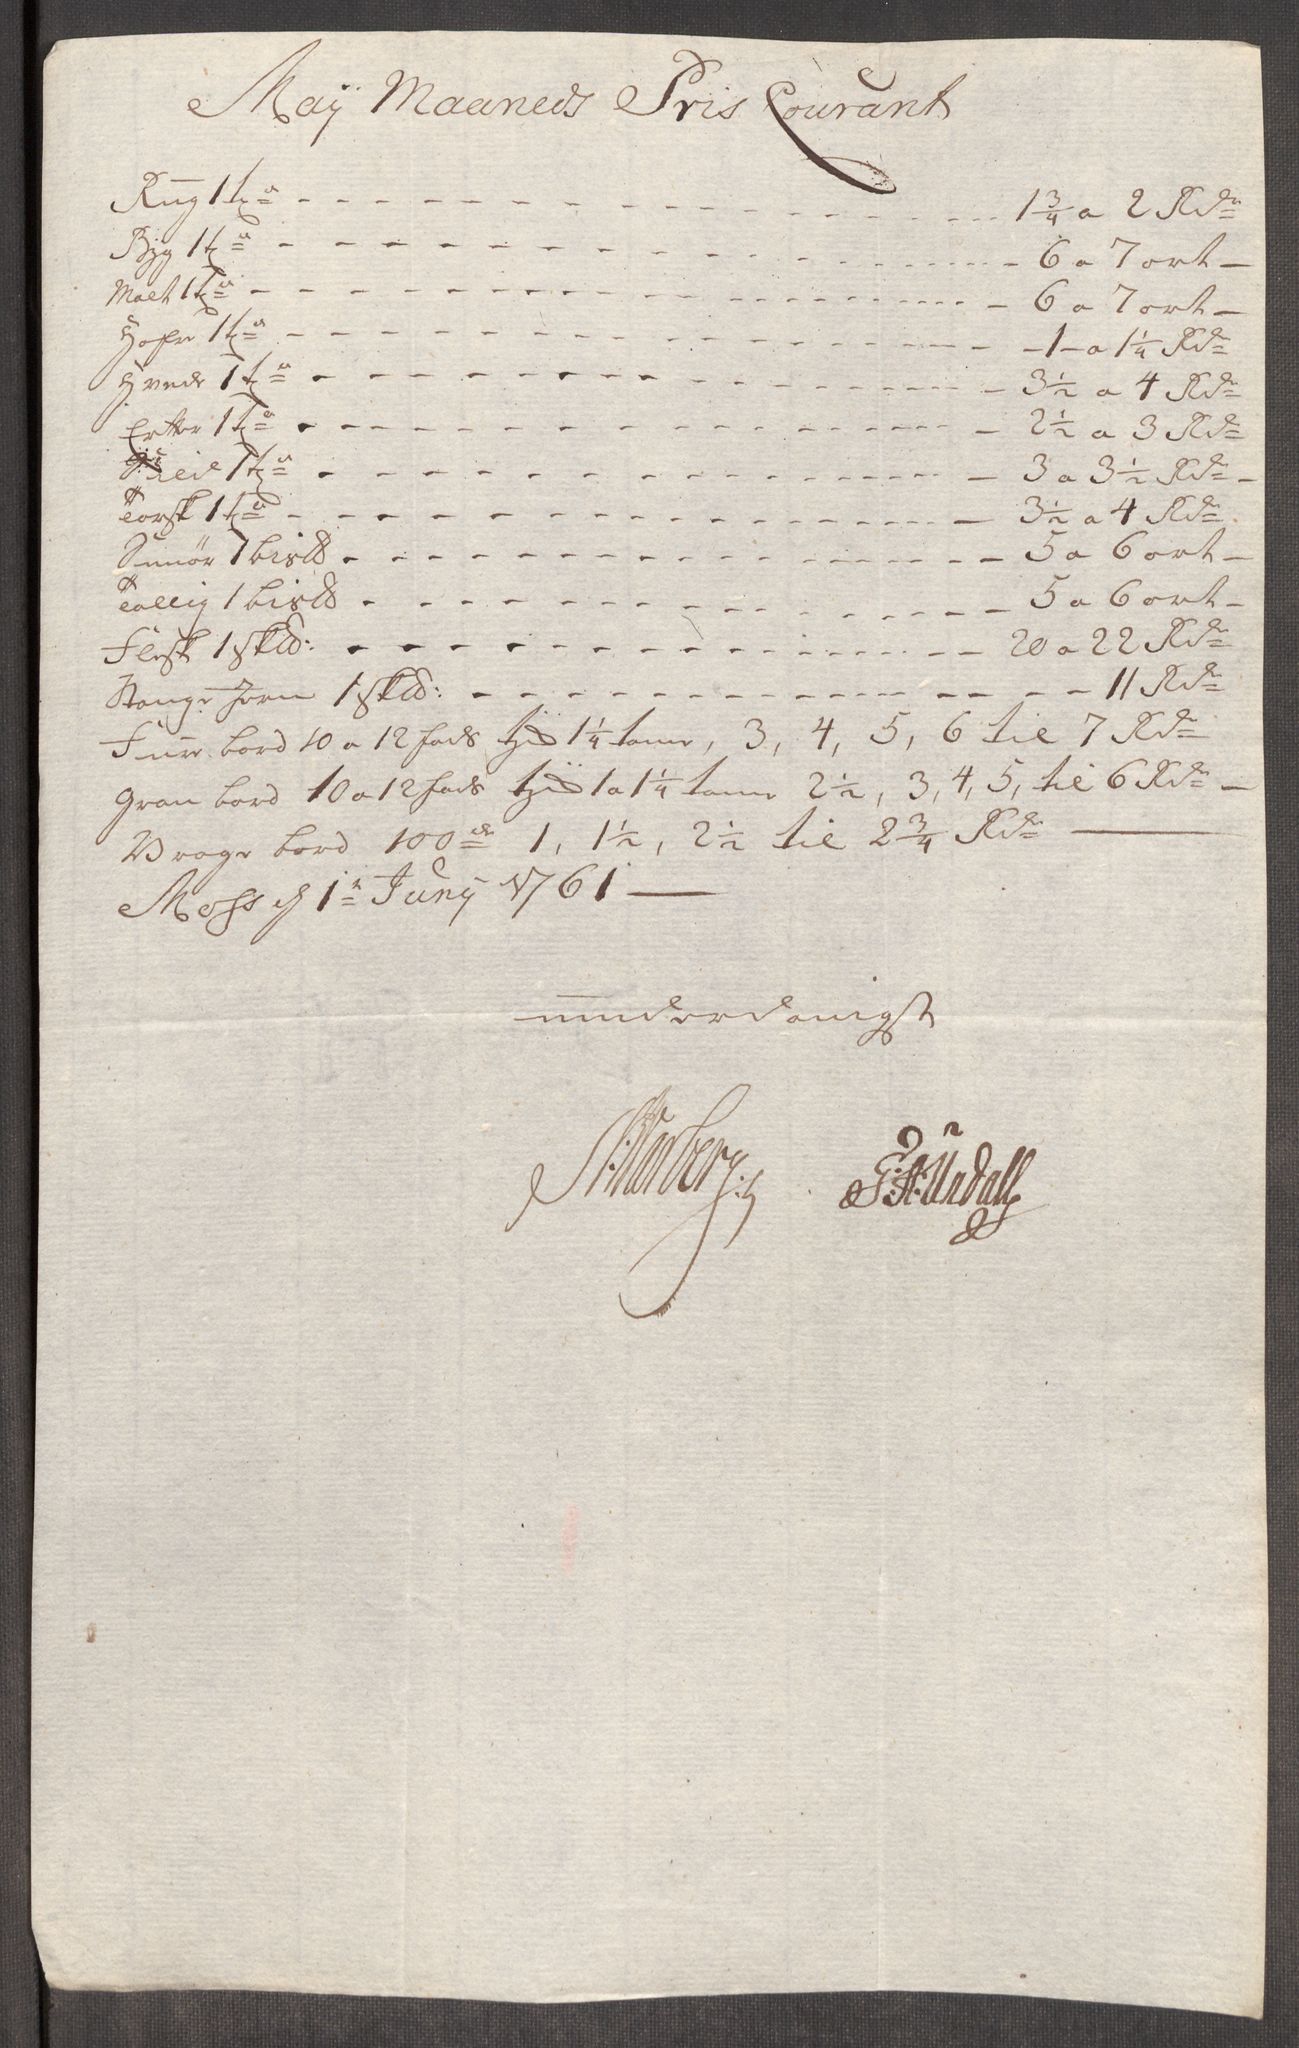 Maÿ Maaneds Pris Courant
Rug 1 tde - 1 3/4 a 2 Rdr
Byg 1 tde - 6 a 7 ort -
Malt 1 tde - 6 a 7 ort -
Hafre 1 tde - 1 a 1 1/4 Rdr
Hvede 1 tde - 3 1/2 a 4 Rdr
Erter 1 tde - 2 1/2 a 3 Rdr
Sild 1 tde - 3 a 3 1/2 Rdr -
Torsk 1 tde - 3 1/2 a 4 Rdr
Smör 1 bis℔ - 5 a 6 ort -
Tallig 1 bis℔ - 5 a 6 ort -
Flesk 1 sk℔: - 20 a 22 Rdr
Stange Jern 1 sk℔: - 11 Rdr
Furu bord 10 a 12 fods 1 1/4 tomr, 3, 4, 5, 6 til 7 Rdr
Gran bord 10 a 12 fods 1 a 1 1/4 tomr 2 1/2, 3, 4, 5, til 6 Rdr -
Vrage bord 100de 1, 1 1/2, 2 1/2 til 2 3/4 Rdr
Moss d 1te Junÿ 1761
underdanigst
G:A:Undall